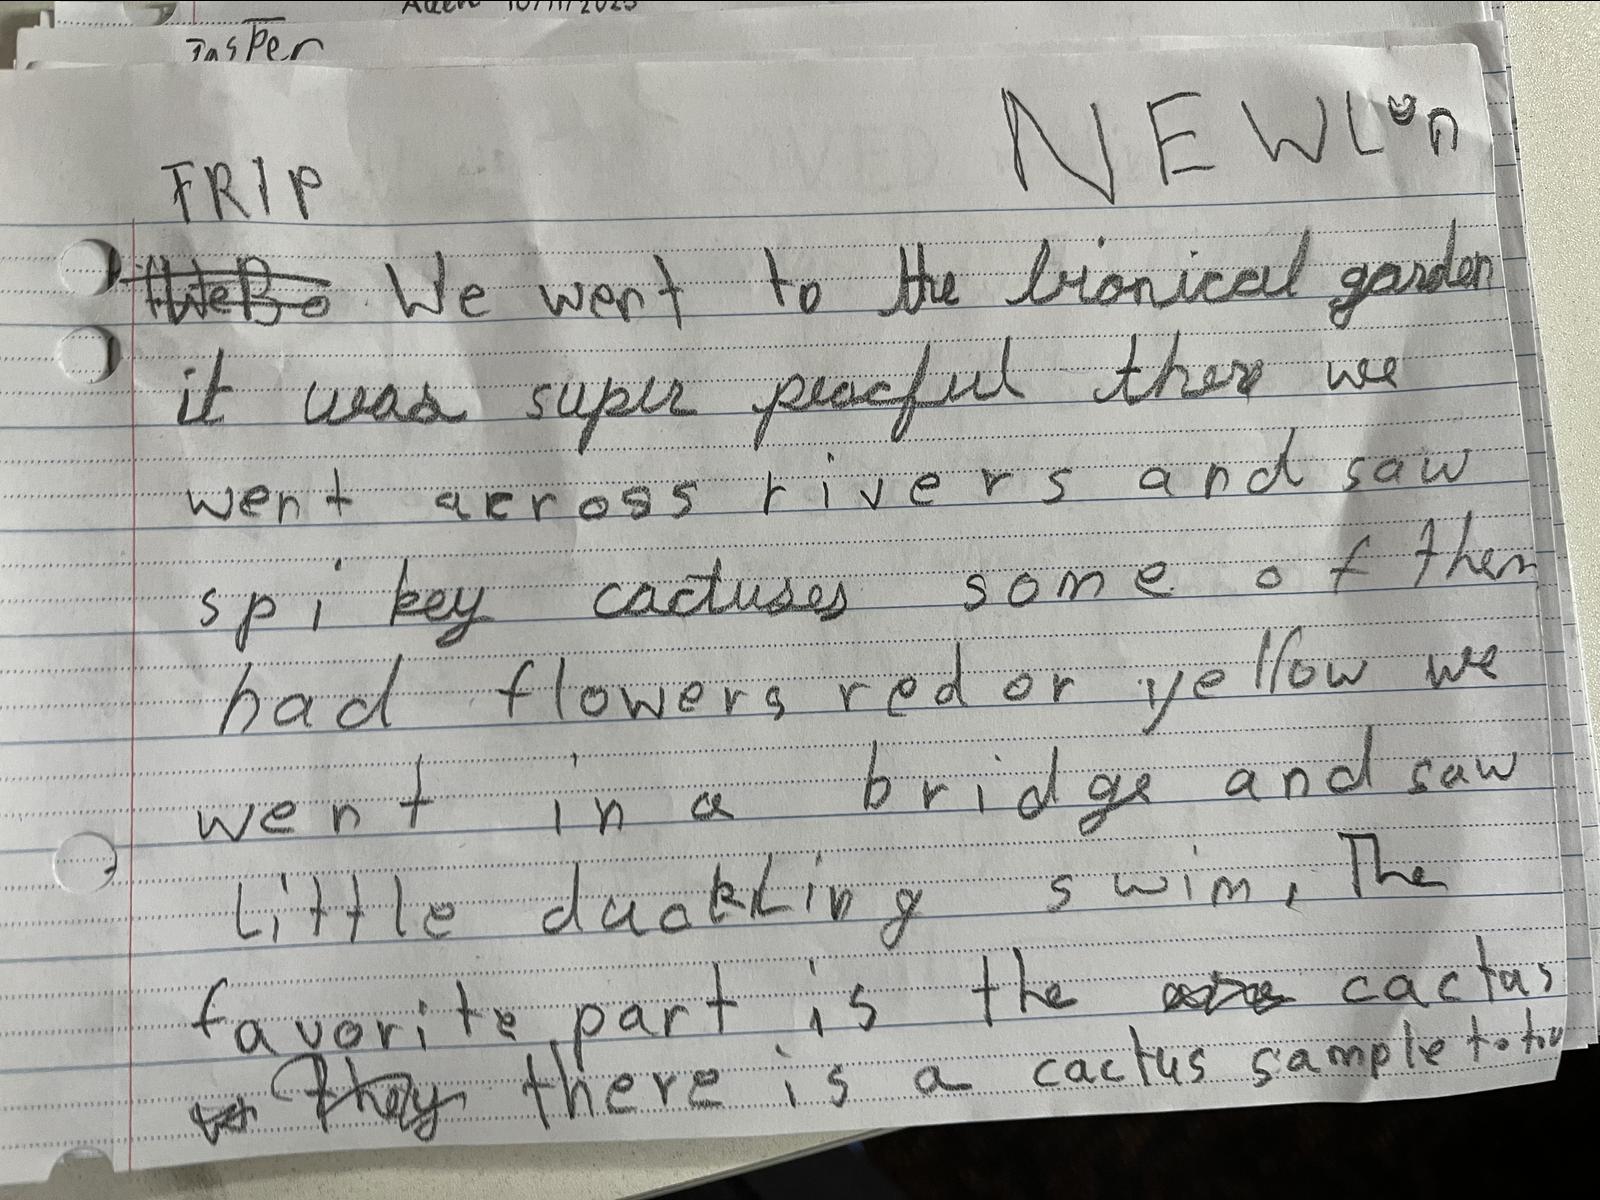 Jasper
NEWLin
TRIP
We went to the bronical garden
it was super peacful there we
went across rivers and saw
spikey cactuses some of them
had flowers red or yellow we
went in a bridge and saw
little duckling swim, The
favorite part is the cactus
They there is a cactus sample to